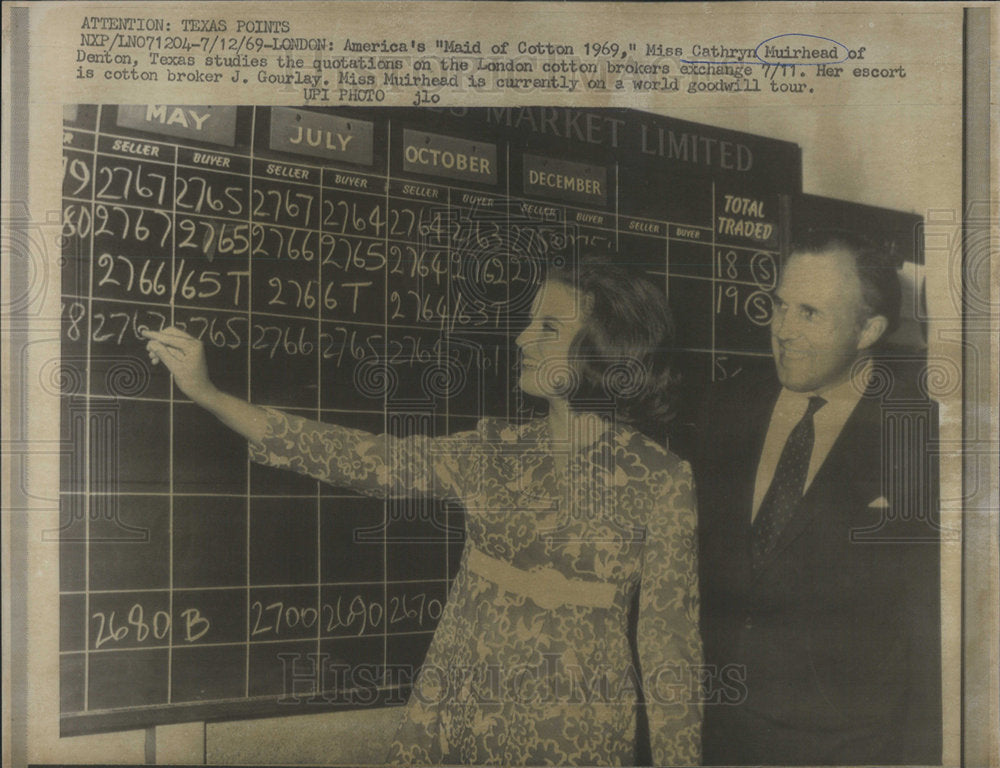 ATTENTION: TEXAS POINTS
NXP/LN071204-7/12/69-LONDON: America's "Maid of Cotton 1969," Miss Cathryn Muirhead of
Denton, Texas studies the quotations on the London cotton brokers exchange 7/11. Her escort
is cotton broker J. Gourlay. Miss Muirhead is currently on a world goodwill tour.
UPI PHOTO jlo
MARKET LIMITED
MAY JULY OCTOBER DECEMBER
SELLER BUYER SELLER BUYER SELLER BUYER SELLER BUYER SELLER BUYER TOTAL TRADED
79 2767 2765 2767 2764 2764 2763
80 2767 2765 2766 2765 2764 2762 18 S
2766/65T 2766T 2764/63T 19 S
78 2767 2765 2766 2765 2765 2761
2680 B 2700 2690 2670
HISTORIC IMAGES